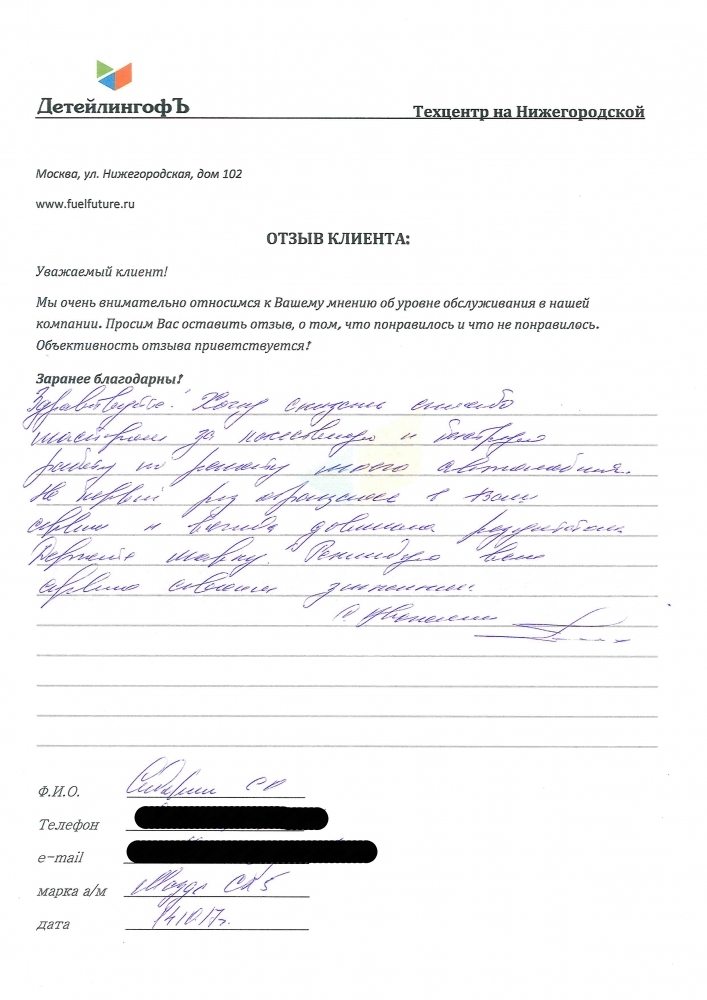 ДетейлингофЪ
Техцентр на Нижегородской
Москва, ул. Нижегородская, дом 102
www.fuelfuture.ru
ОТЗЫВ КЛИЕНТА:
Уважаемый клиент!
Мы очень внимательно относимся к Вашему мнению об уровне обслуживания в нашей
компании. Просим Вас оставить отзыв, о том, что понравилось и что не понравилось.
Объективность отзыва приветствуется!
Заранее благодарны!
Здравствуйте! Хочу сказать спасибо
мастерам за качественную и быструю
работу по ремонту моего автомобиля.
Не первый раз обращаюсь в Ваш
сервис и всегда довольна результатом.
Держите марку! Рекомендую всем
сервис своим знакомым.
С Уважением
Ф.И.О. С.В.
Телефон
e-mail
марка а/м Мазда СХ5
дата 14.10.17г.